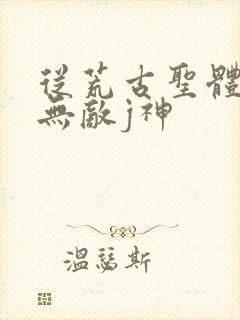 從荒古聖體
無敵j神
溫瑟斯